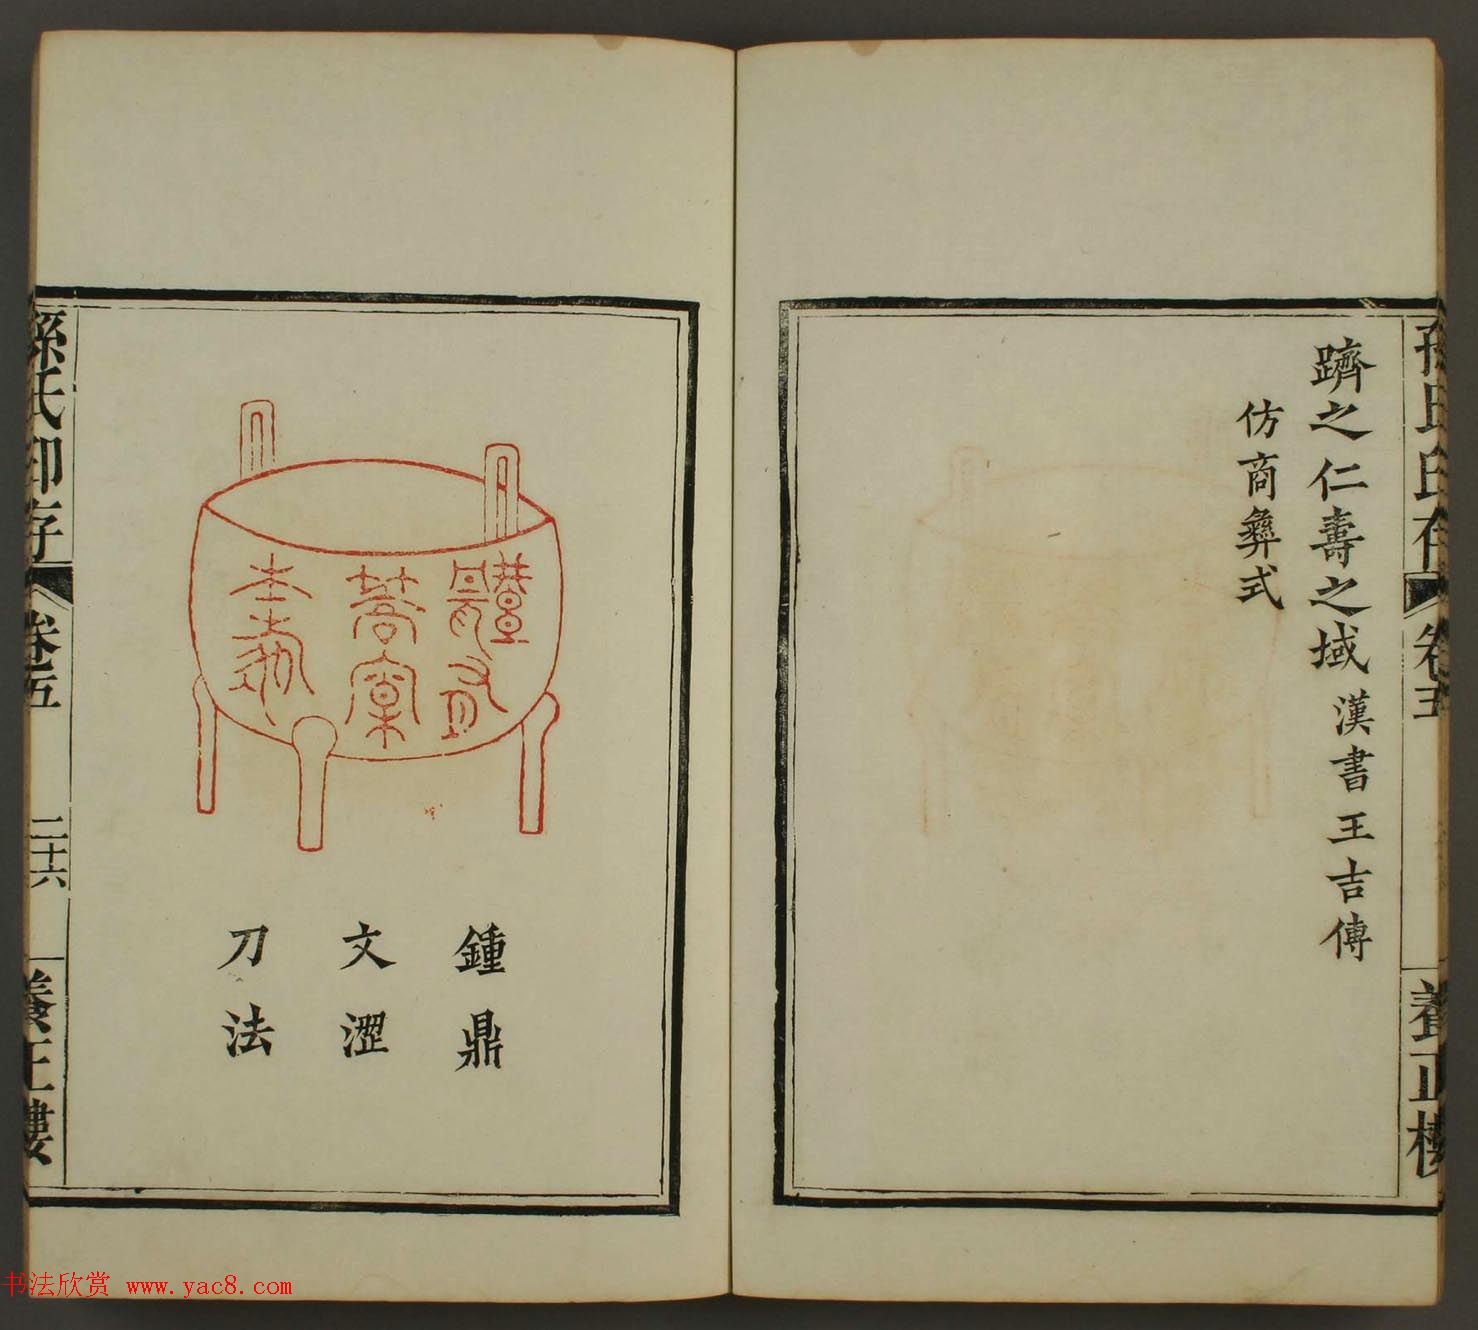 躋之仁壽之域 漢書王吉傳
仿商彝式
孫氏印存
卷五
養正樓
鍾鼎
文澀
刀法
孫氏印存
卷五
二十六
養正樓
书法欣赏 www.yac8.com